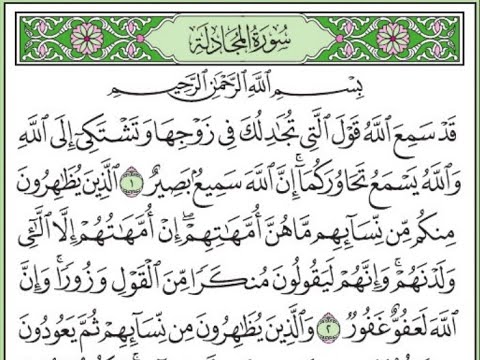 سُورَةُ المُجَادلَةِ
بِسْمِ ٱللَّهِ ٱلرَّحْمَٰنِ ٱلرَّحِيمِ
قَدْ سَمِعَ ٱللَّهُ قَوْلَ ٱلَّتِي تُجَٰدِلُكَ فِي زَوْجِهَا وَتَشْتَكِيٓ إِلَى ٱللَّهِ
وَٱللَّهُ يَسْمَعُ تَحَاوُرَكُمَآۚ إِنَّ ٱللَّهَ سَمِيعُۢ بَصِيرٌ ١ ٱلَّذِينَ يُظَٰهِرُونَ
مِنكُم مِّن نِّسَآئِهِم مَّا هُنَّ أُمَّهَٰتِهِمۡۖ إِنۡ أُمَّهَٰتُهُمۡ إِلَّا ٱلَّٰٓـِٔي
وَلَدۡنَهُمۡۚ وَإِنَّهُمۡ لَيَقُولُونَ مُنكَرٗا مِّنَ ٱلۡقَوۡلِ وَزُورٗاۚ وَإِنَّ
ٱللَّهَ لَعَفُوٌّ غَفُورٞ ٢ وَٱلَّذِينَ يُظَٰهِرُونَ مِن نِّسَآئِهِمۡ ثُمَّ يَعُودُونَ